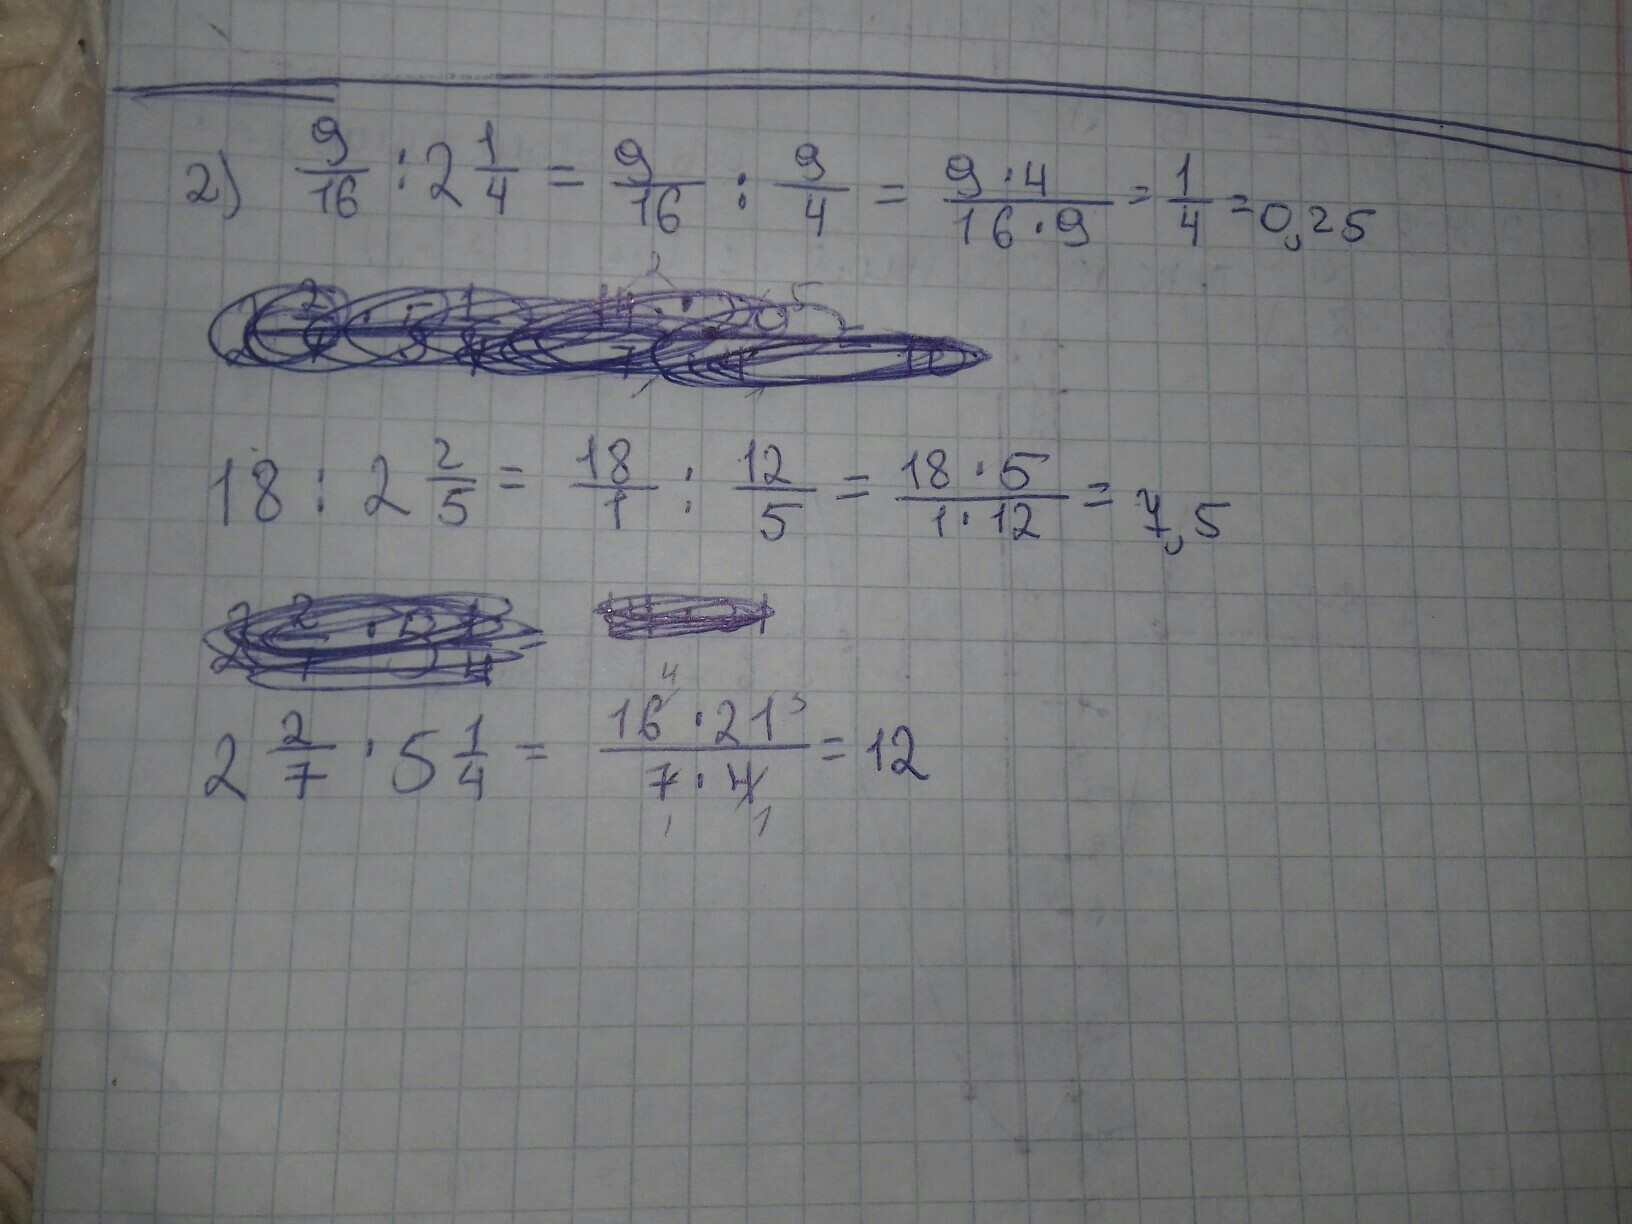 2) 9/16 : 2 1/4 = 9/16 : 9/4 = 9·4/16·9 = 1/4 = 0,25
18 : 2 2/5 = 18/1 : 12/5 = 18·5/1·12 = 7,5
2 2/7 · 5 1/4 = 16 4 · 21 3 / 7 1 · 4 1 = 12